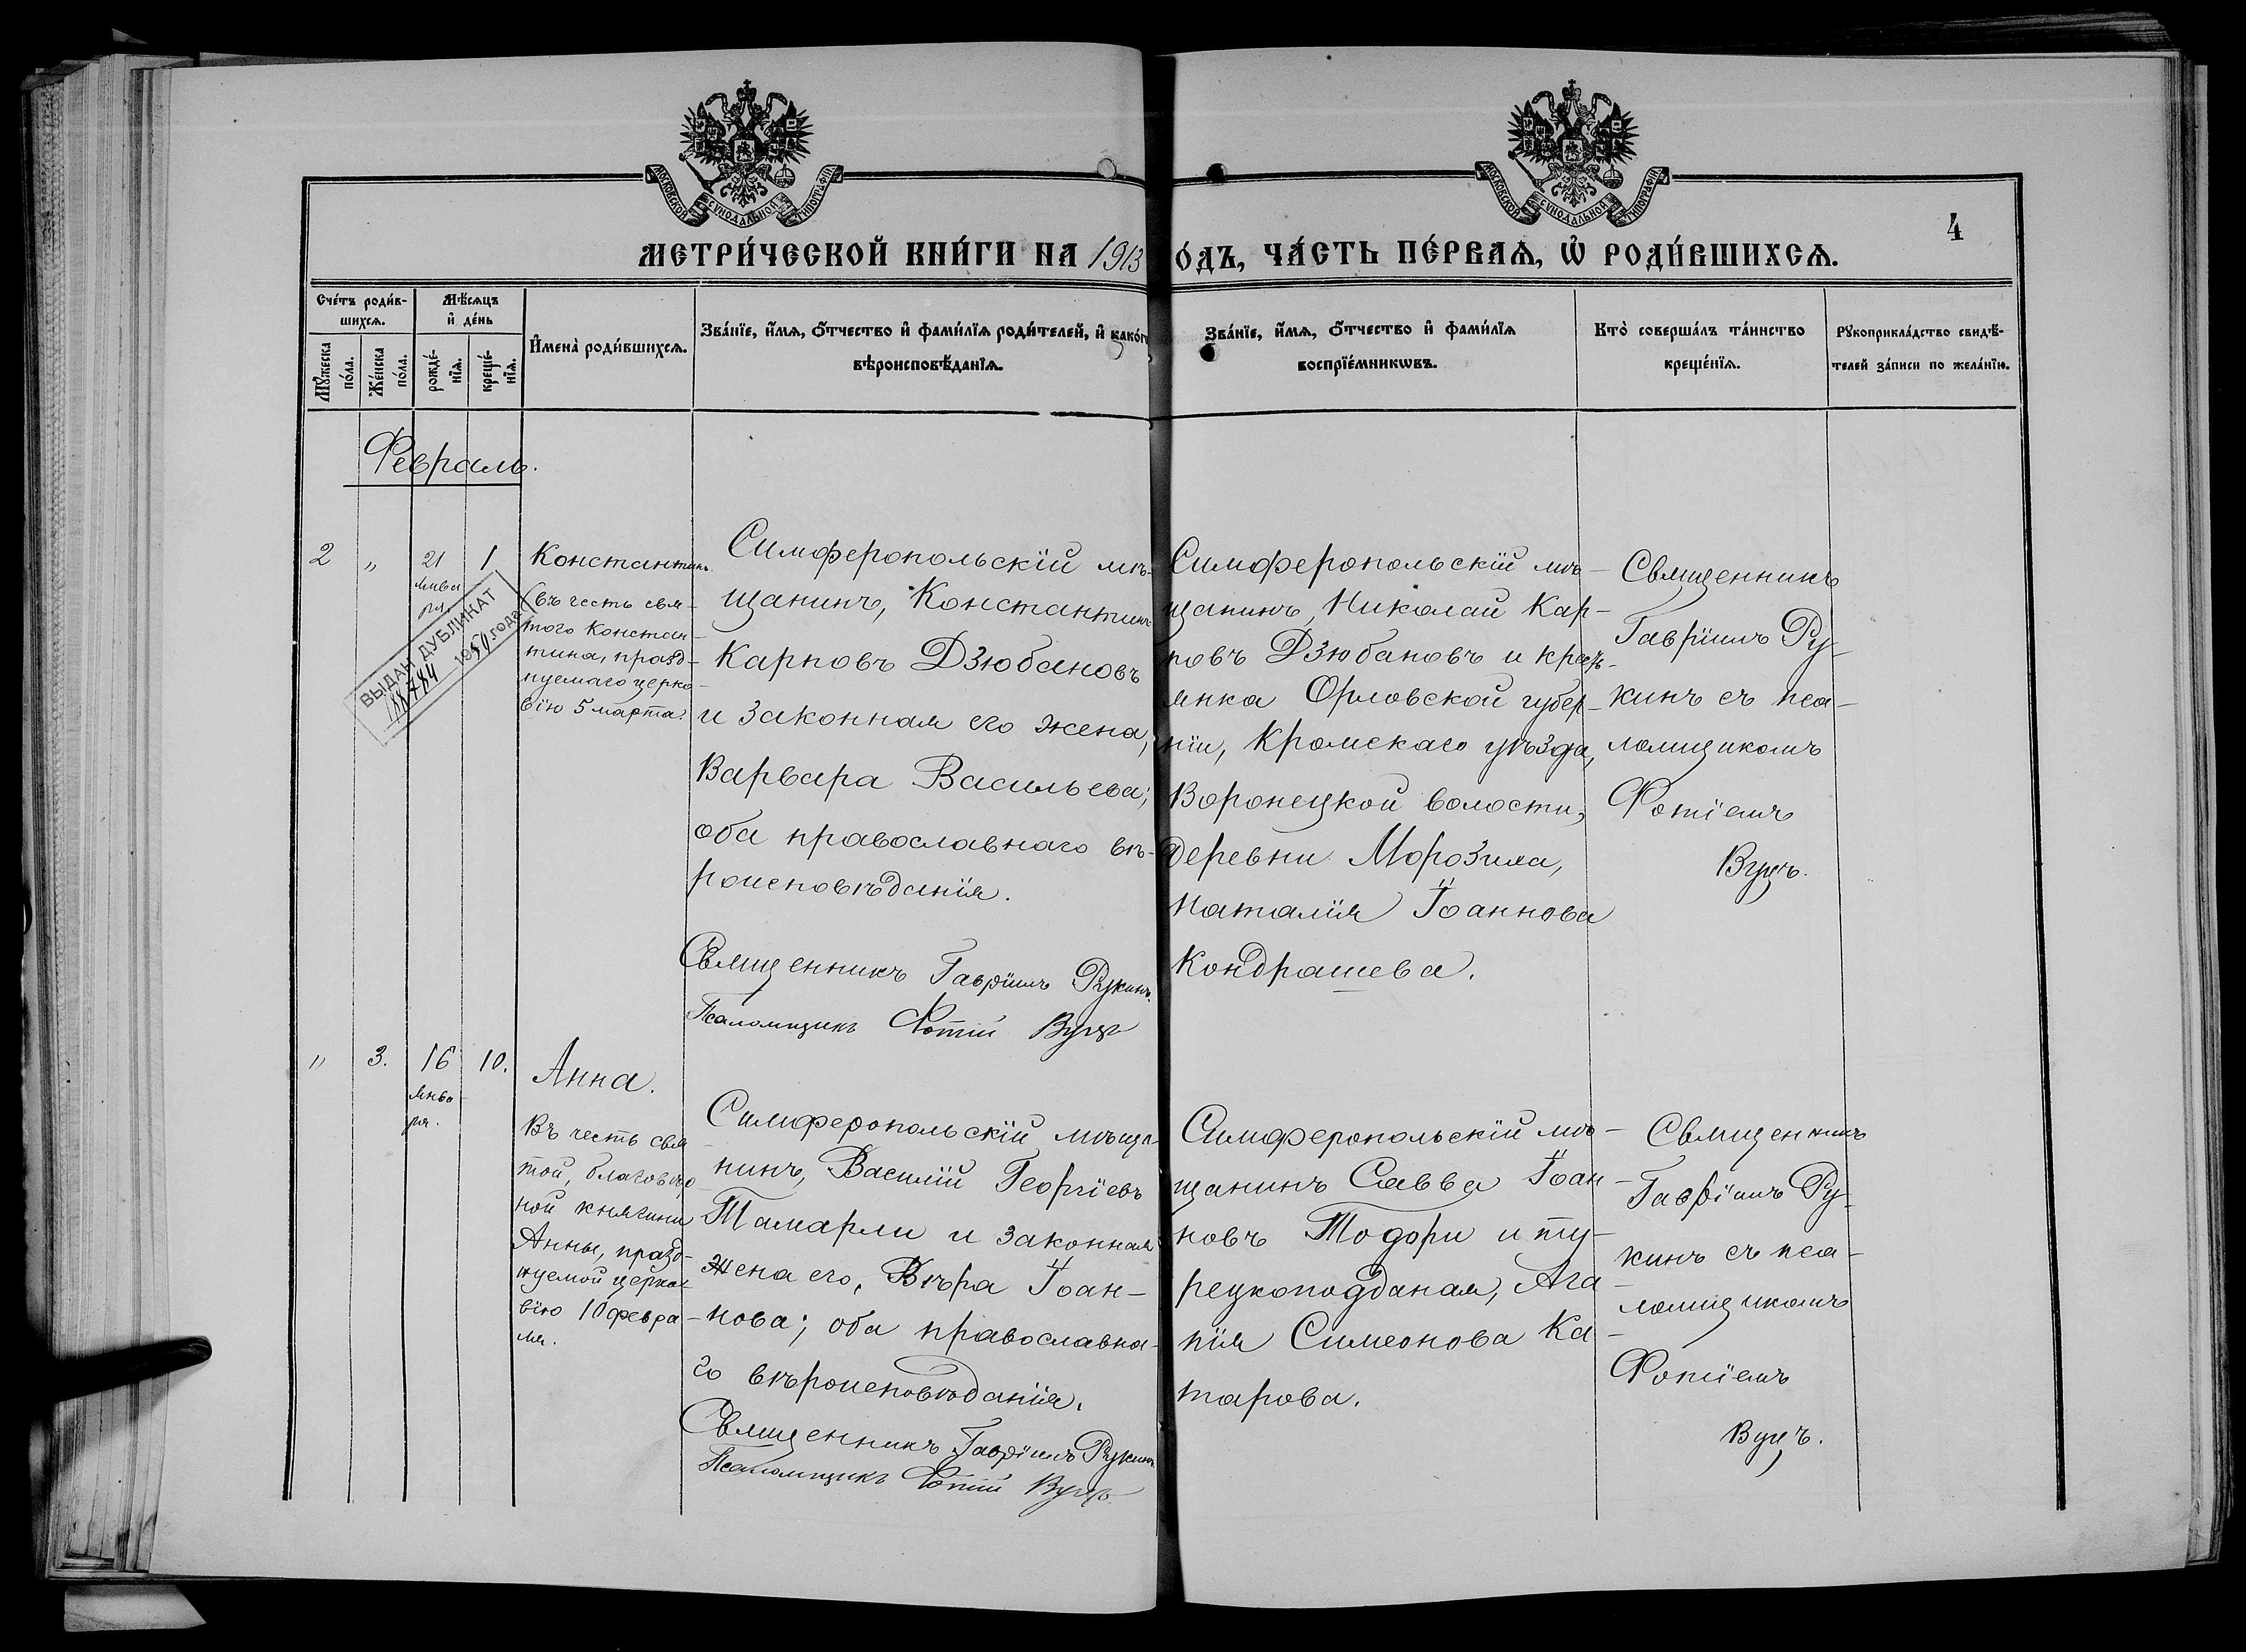 МОСКОВСКОЙ СѴНОДАЛЬНОЙ ТИПОГРАФІИ
МОСКОВСКОЙ СѴНОДАЛЬНОЙ ТИПОГРАФІИ
4
МЕТРИ́ЧЕСКОЙ КНИ́ГИ НА 1913
О́ДЪ, ЧА́СТЬ ПЕ́РВАѦ, Ѡ҆ РОДИ́ВШИХСѦ.
Сче́тъ роди́в-
шихсѧ.
Мѣ́сѧцъ
и҆ де́нь
Мꙋ́жеска
по́ла.
Же́нска
по́ла.
рожде́-
нїѧ.
креще́-
нїѧ.
И҆мена̀ роди́вшихсѧ.
Зва́нїе, и҆́мѧ, ѻ҆́тчество и҆ фами́лїѧ роди́телей, и҆ како́гѡ
вѣроисповѣ́данїѧ.
Зва́нїе, и҆́мѧ, ѻ҆́тчество и҆ фами́лїѧ
воспрїе́мникѡвъ.
Кто̀ соверша́лъ та́инство
креще́нїѧ.
Рꙋкоприкла́дство свидѣ́-
телей за́писи по жела́нїю.
Февраль.
2 " 21 1
Января.
Константинъ
(въ честь свя-
того Констан-
тина, празд-
нуемаго церко-
вію 5 марта.
ВЫДАН ДУБЛИКАТ
188784 1950 года
Симферопольскій мѣ-
щанинъ, Константинъ
Карповъ Дзюбановъ
и законная его жена,
Варвара Васильева;
оба православнаго вѣ-
роисповѣданія.
Священникъ Гавріилъ Рукинъ.
Псаломщикъ Фотій Вуцъ
Симферопольскій мѣ-
щанинъ, Николай Кар-
повъ Дзюбановъ и кресть-
янка Орловской губер-
ніи, Кромскаго уѣзда,
Воронецкой волости,
деревни Морозиха,
Наталія Іоаннова
Кондрашева.
Священникъ
Гавріилъ Ру-
кинъ съ пса-
ломщикомъ
Фотіемъ
Вуцъ.
" 3. 16 10.
Янва-
ря.
Анна.
Въ честь свя
той, благовѣр
ной княгини
Анны, празд-
нуемой церко-
вію 10 февра-
ля.
Симферопольскій мѣща-
нинъ, Василій Георгіевъ
Тамарли и законная
жена его, Вѣра Іоан-
нова; оба православна-
го вѣроисповѣданія.
Священникъ Гавріилъ Рукинъ.
Псаломщикъ Фотій Вуцъ
Симферопольскій мѣ-
щанинъ Савва Іоан-
новъ Тодори и ту-
рецкоподданая, Ага-
пія Симеонова Ка-
тарова.
Священникъ
Гавріилъ Ру-
кинъ съ пса-
ломщикомъ
Фотіемъ
Вуцъ.